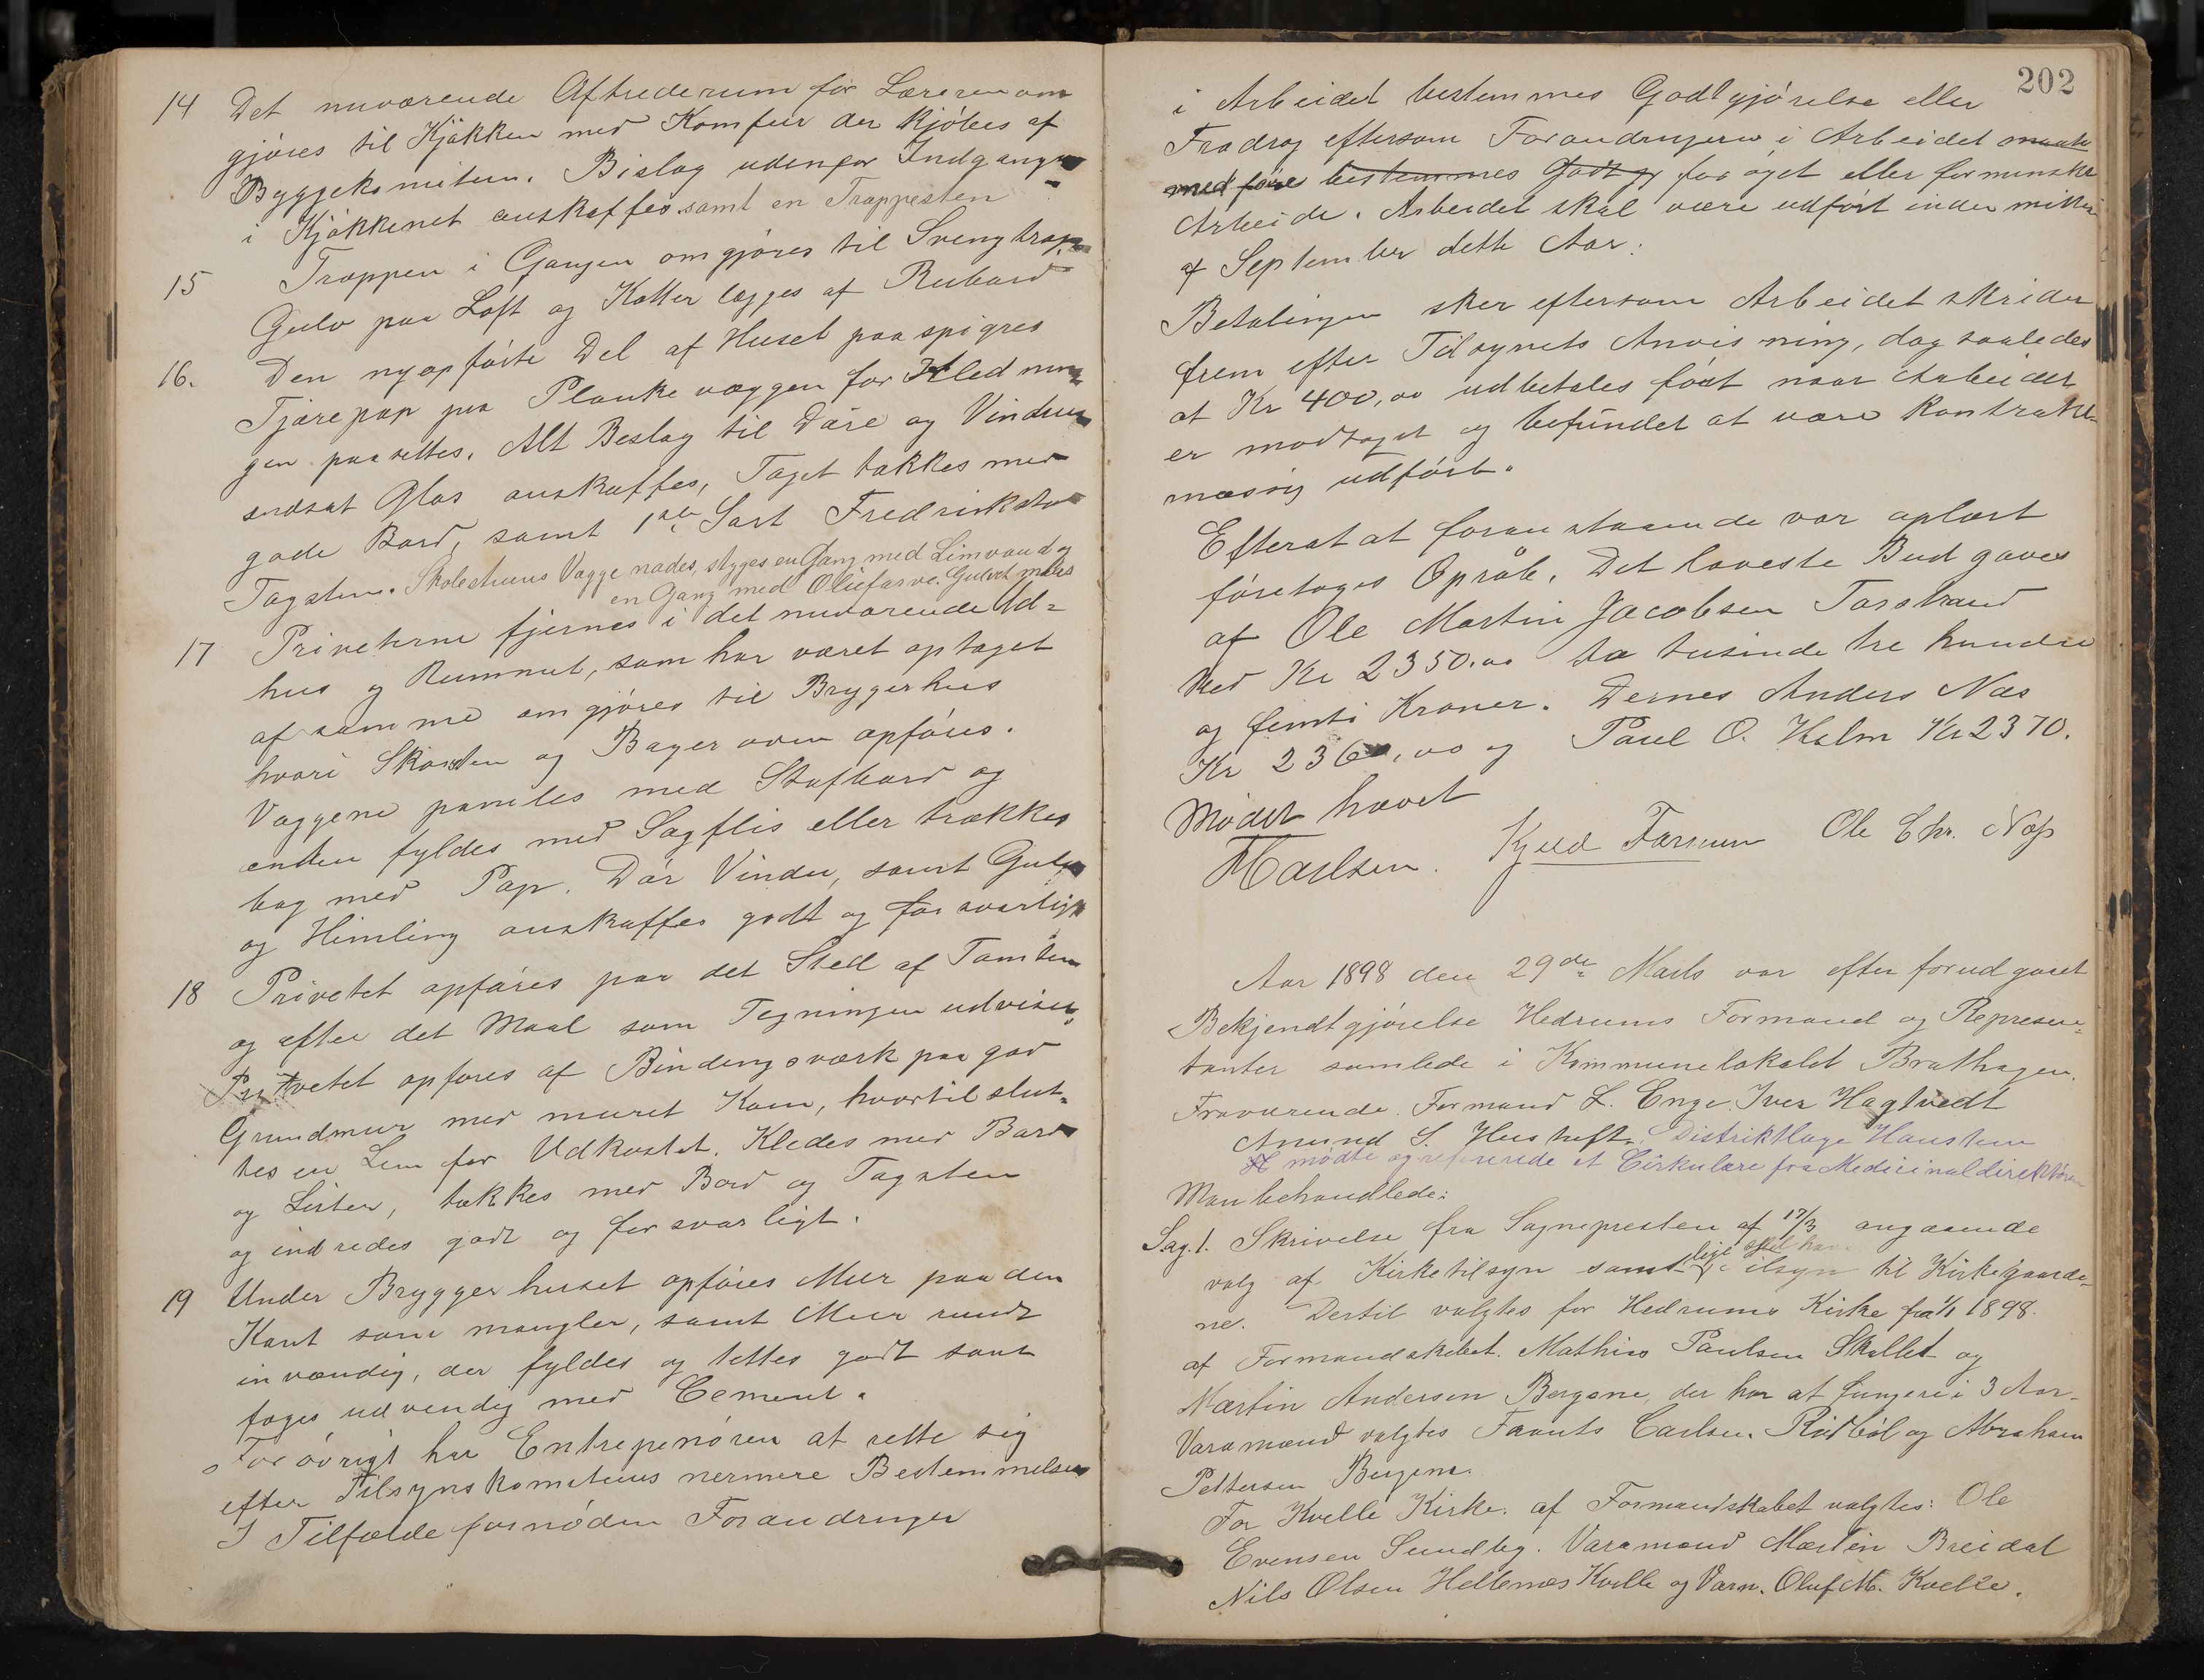 14 Det nuværende Aftrederum for Læreren om
gjöres til Kjökken med Komfur der kjöbes af
Byggekomiteen. Bislag udenfor Indgangen
i Kjökkenet anskaffes samt en Trappesten
15 Trappen i Gangen omgjöres til Svengtrap
Gulv paa Loft og Kotter lægges af Rubord
16. Den nyopförte Del af Huset paaspigres
Tjærepap paa Plankevæggen før Kledning
gen paasettes. Alt Beslag til Döre og Vinduer
indsat Glas anskaffes, Taget tækkes med
gode Bord, samt 1ste Sort Fredrikstad
Tagsten. Skolestuens Vægge nades, styges en Gang med Limvand og
en Gang med Oliefarve. Gulvet males
17 Priveterne fjernes i det nuværende Ud=
hus og Rummet, som har været optaget
af samme omgjöres til Brygerhus
hvori Skorsten og Bagerovn opföres.
Væggene paneles med Stafbord og
enten fyldes med Sagflis eller trækkes
bag med Pap. Dör Vindu, samt Gulv
og Himling anskaffes godt og forsvarligt
18 Privetet opföres paa det Sted af Tomten
og efter det Maal som Tegningen udviser.
Privetet opføres af Bindingsværk paa god
Grundmur med muret Kum, hvortil slut=
tes en Lem for Udkastet. Kledes med Bord
og Lister, tækkes med Bord og Tagsten
og indredes godt og forsvarligt.
19 Under Bryggerhuset opföres Mur paa den
Kant som mangler, samt Mur rundt
invændig, der fyldes og tettes godt samt
fuges udvendig med Cement.
Forövrigt har Entrepenören at rette sig
efter Tilsynskomiteens nermere Bestemmelser
I Tilfælde fornöden Forandringer
202
i Arbeidet bestemmes Godtgjörelse eller
Fradrag eftersom Forandringerne i Arbeidet maatte
medføre bestemmes Godtgj forøget eller formindsket
Arbeide. Arbeidet skal være udfört inden midten
af September dette Aar.
Betalingen sker eftersom Arbeidet skrider
frem efter Tilsynets Anvisning, dog saaledes
at Kr 400,00 udbetales först naar Arbeidet
er modtaget og befundet at være kontrakt=
mæssig udfört.
Efterat at foranstaaende var oplæst
företoges Opraab. Det laveste Bud gaves
af Ole Martin Jacobsen Torstrand
ved Kr 2350.00 to tusinde tre hundre
og femti Kroner. Dernes Anders Næs
Kr 2360,00 og Paul O. Holm Kr 2370.
Mödet hævet
HCarlsen. Kjeld Farmen Ole Chr. Næs
Aar 1898 den 29de Marts var efter forudgaaet
Bekjendtgjörelse Hedrums Formænd og Represen=
tanter samlede i Kommunelokalet Brathagen.
Fraværende. Formænd L. Enge. Iver Hagtvedt
Anund S. Hustuft. Distriktlæge Hanstein
mödte og refererede et Cirkulære fra Medicinaldirektören
Man behandlede:
Sag. 1. Skrivelse fra Sognepresten af 17/3 angaaende
valg af Kirketilsyn samt tilsyn til Kirkegaarde=
ne. Dertil valgtes for Hedrums Kirke fra 1/1 1898.
af Formandskabet. Mathias Paulsen Skallet og
Martin Andersen Bergene, der har at fungere i 3 Aar.
Varamænd valgtes Frants Carlsen Rödböl og Abraham
Pettersen Bergene.
For Kvelle Kirke. af Formandskabet valgtes: Ole
Evensen Sundby. Varamand Martin Breidal
Nils Olsen Hellenæs Kvelle og Varm. Oluf M. Kvelle.